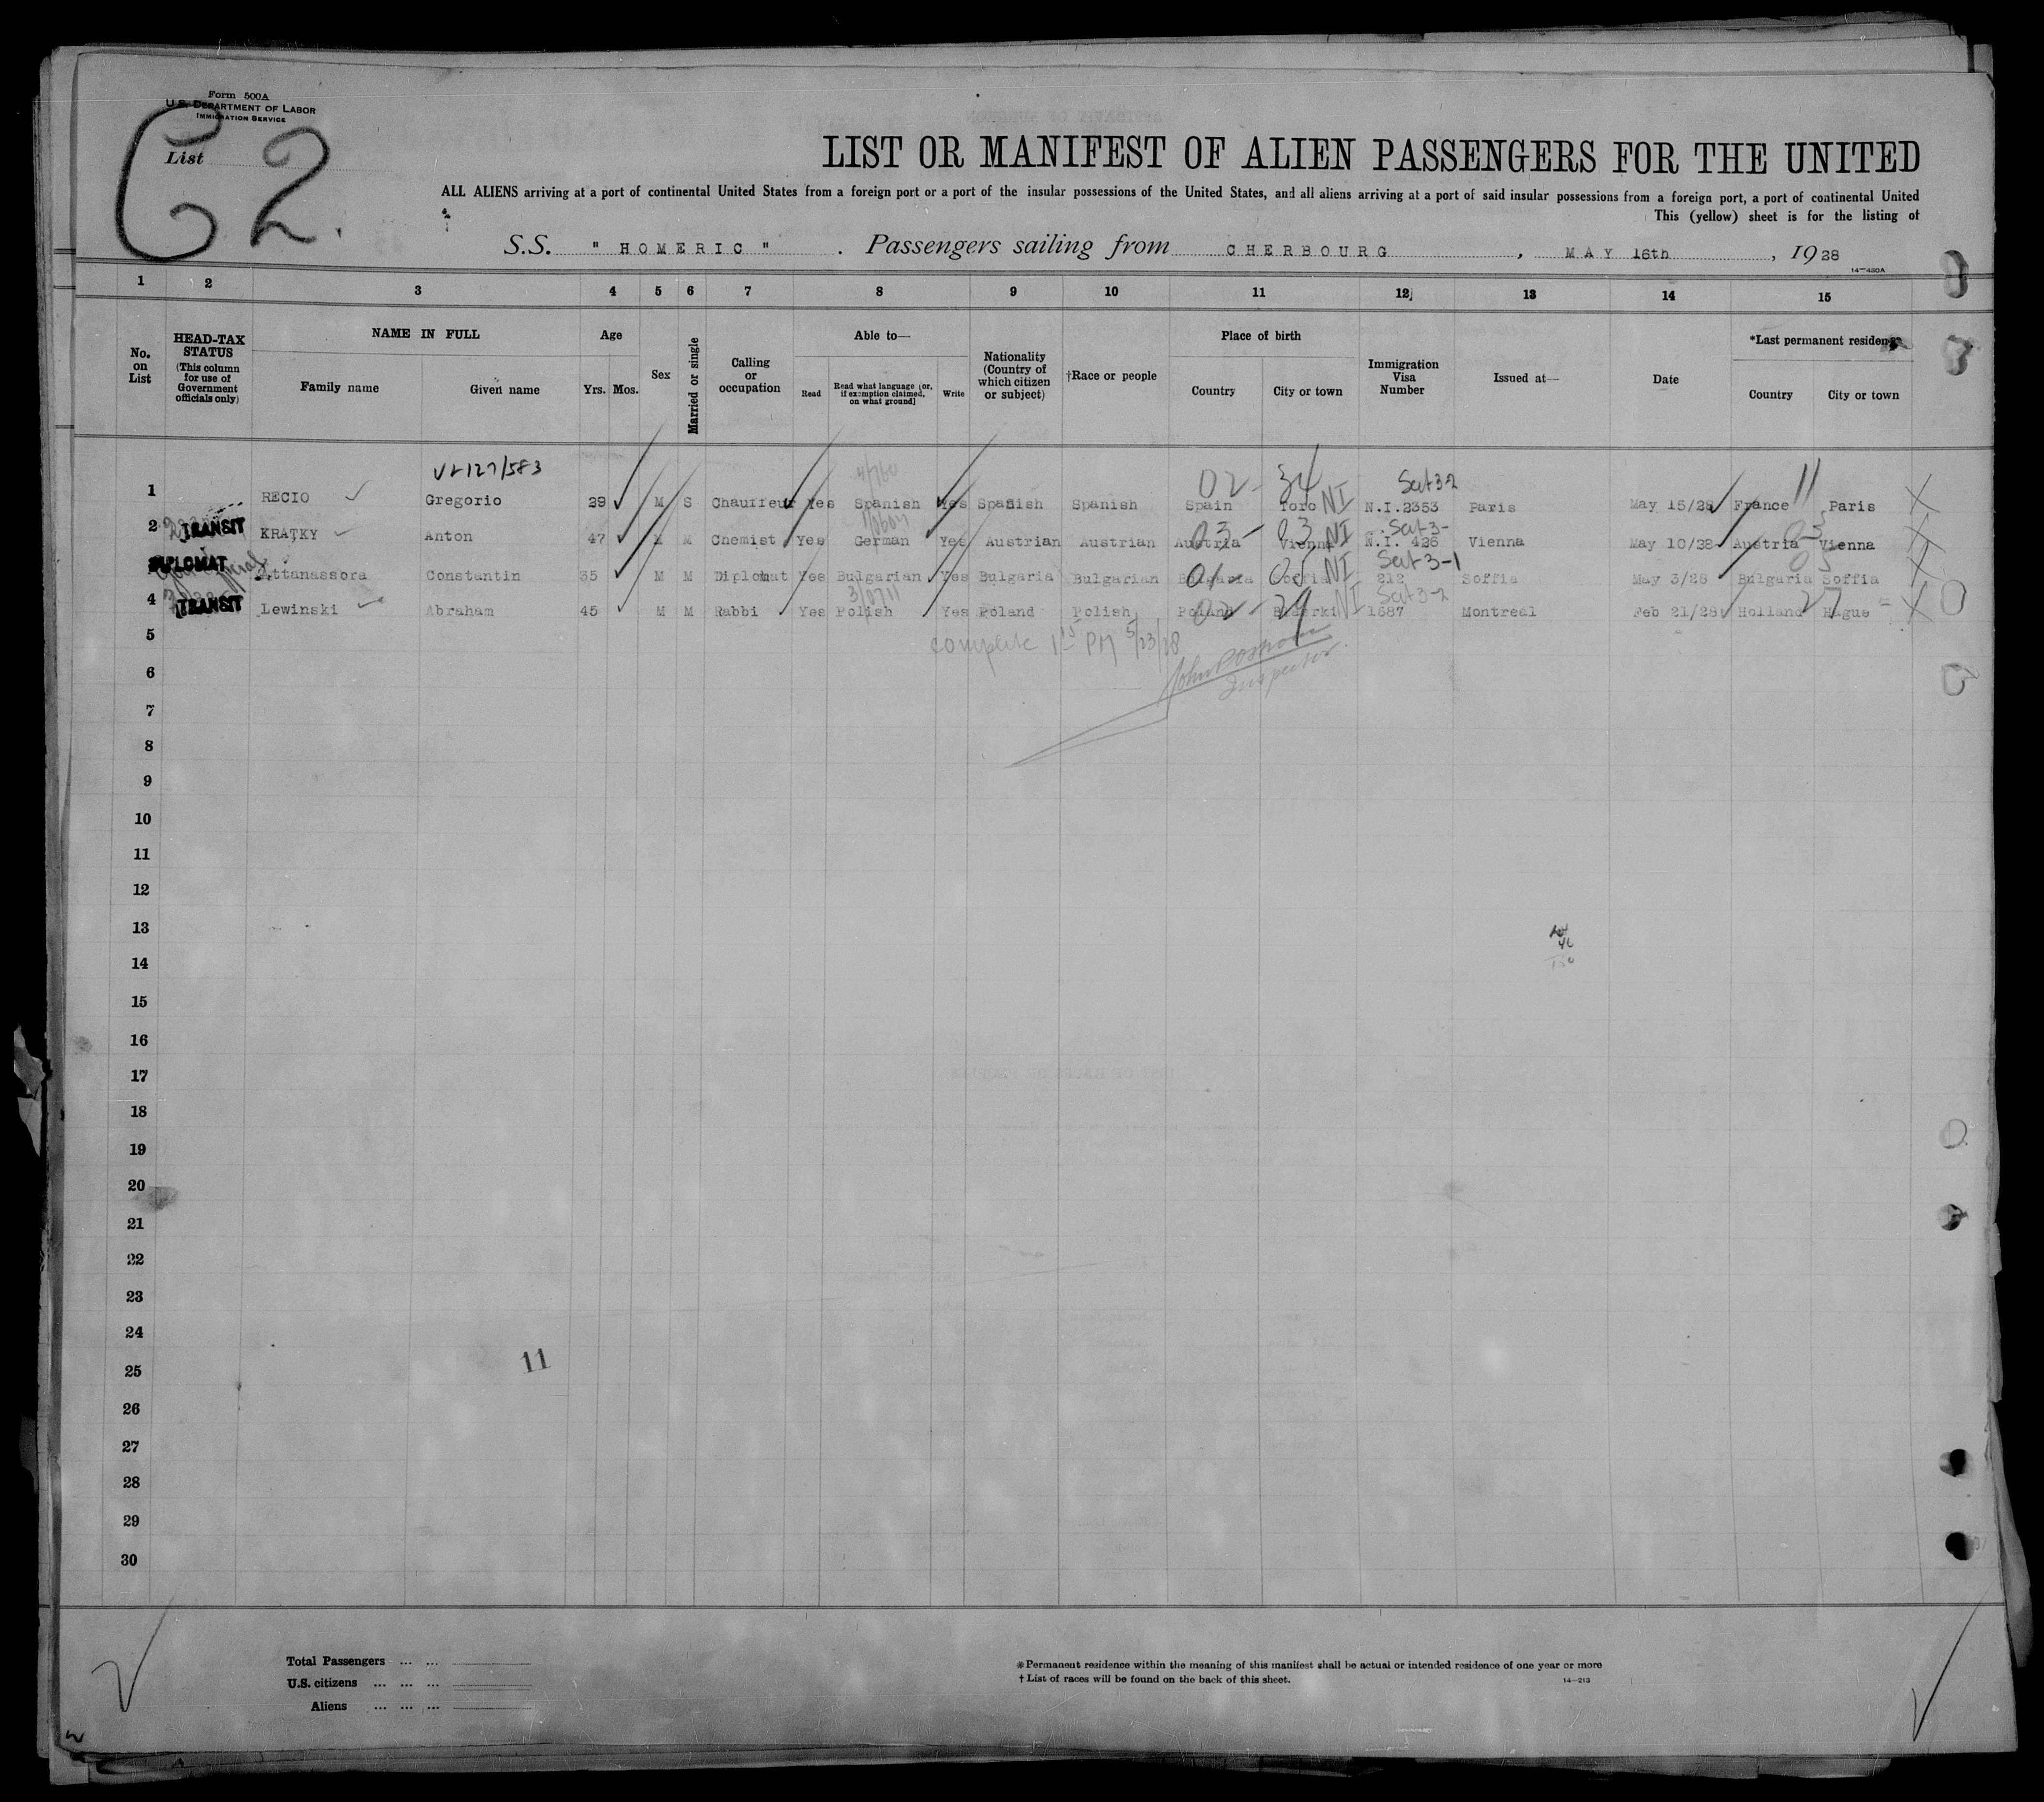 Form 500A
U.S. DEPARTMENT OF LABOR
IMMIGRATION SERVICE
List
62.
LIST OR MANIFEST OF ALIEN PASSENGERS FOR THE UNITED
ALL ALIENS arriving at a port of continental United States from a foreign port or a port of the insular possessions of the United States, and all aliens arriving at a port of said insular possessions from a foreign port, a port of continental United
This (yellow) sheet is for the listing of
S.S. " HOMERIC " . Passengers sailing from CHERBOURG , MAY 16th , 1928
14—430A
1 2 3 4 5 6 7 8 9 10 11 12 13 14 15
No. on List
HEAD-TAX STATUS (This column for use of Government officials only)
NAME IN FULL
Family name Given name
Age
Yrs. Mos.
Sex
Married or single
Calling or occupation
Able to—
Read
Read what language [or, if exemption claimed, on what ground]
Write
Nationality (Country of which citizen or subject)
†Race or people
Place of birth
Country City or town
Immigration Visa Number
Issued at—
Date
*Last permanent residence
Country City or town
127/583
02 - 34 NI Sect 3-2 11
1 RECIO Gregorio 39 M S Chauffeur Yes Spanish Yes Spanish Spanish Spain Toro N.I.2353 Paris May 15/28 France Paris
03 - 03 NI Sect 3-
2 TRANSIT KRATKY Anton 47 M M Chemist Yes German Yes Austrian Austrian Austria Vienna N.I. 426 Vienna May 10/28 Austria Vienna
01 - 05 NI Sect 3-1
DIPLOMAT Attanassora Constantin 35 M M Diplomat Yes Bulgarian Yes Bulgaria Bulgarian Bulgaria Soffia 212 Soffia May 3/28 Bulgaria Soffia
02 - 29 NI Sect 3-2 27
4 TRANSIT Lewinski Abraham 45 M M Rabbi Yes Polish Yes Poland Polish Poland 1687 Montreal Feb 21/28 Holland Hague
complete 1st PM 5/23/28
John
Inspector.
5
6
7
8
9
10
11
12
13
14
15
16
17
18
19
20
21
22
23
24
11
25
26
27
28
29
30
Total Passengers ... ...
U.S. citizens ... ... ...
Aliens ... ... ...
*Permanent residence within the meaning of this manifest shall be actual or intended residence of one year or more
† List of races will be found on the back of this sheet.
14—213